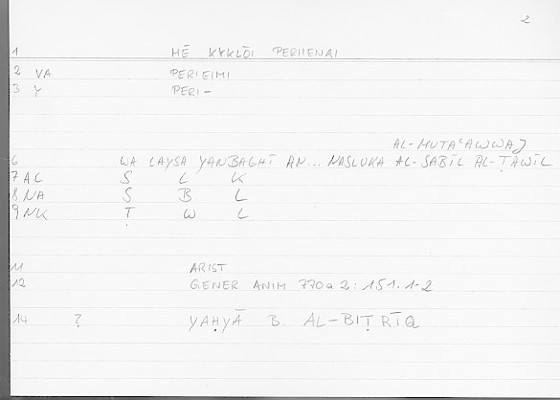 2
1 MĒ KYKLŌI PERIIENAI
2 VA PERIEIMI
3 Y PERI-
AL-MUTAʿAWWAJ
6 WA LAYSA YANBAGHĪ AN... NASLUKA AL-SABĪL AL-ṬAWĪL
7 AL S L K
8 NA S B L
9 NK Ṭ W L
11 ARIST
12 GENER ANIM 770a2: 151.1-2
14 ? YAḤYĀ B. AL-BIṬRĪQ